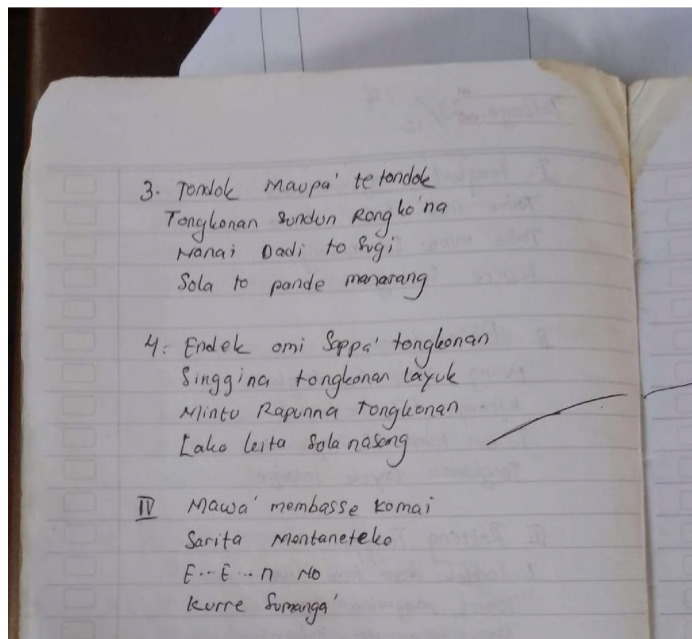 3. Tondok Maupa' te tondok
Tongkonan Sundun Rongko'na
Nanai Dadi to Sugi
Sola to pande manarang
4. Endek omi Sappa' tongkonan
Singgina tongkonan Layuk
Mintu Rapunna Tongkonan
Lako kita Sola nasang
IV Mawa' membasse komai
Sarita Mentaneteko
E...E...n No
Kurre Sumanga'